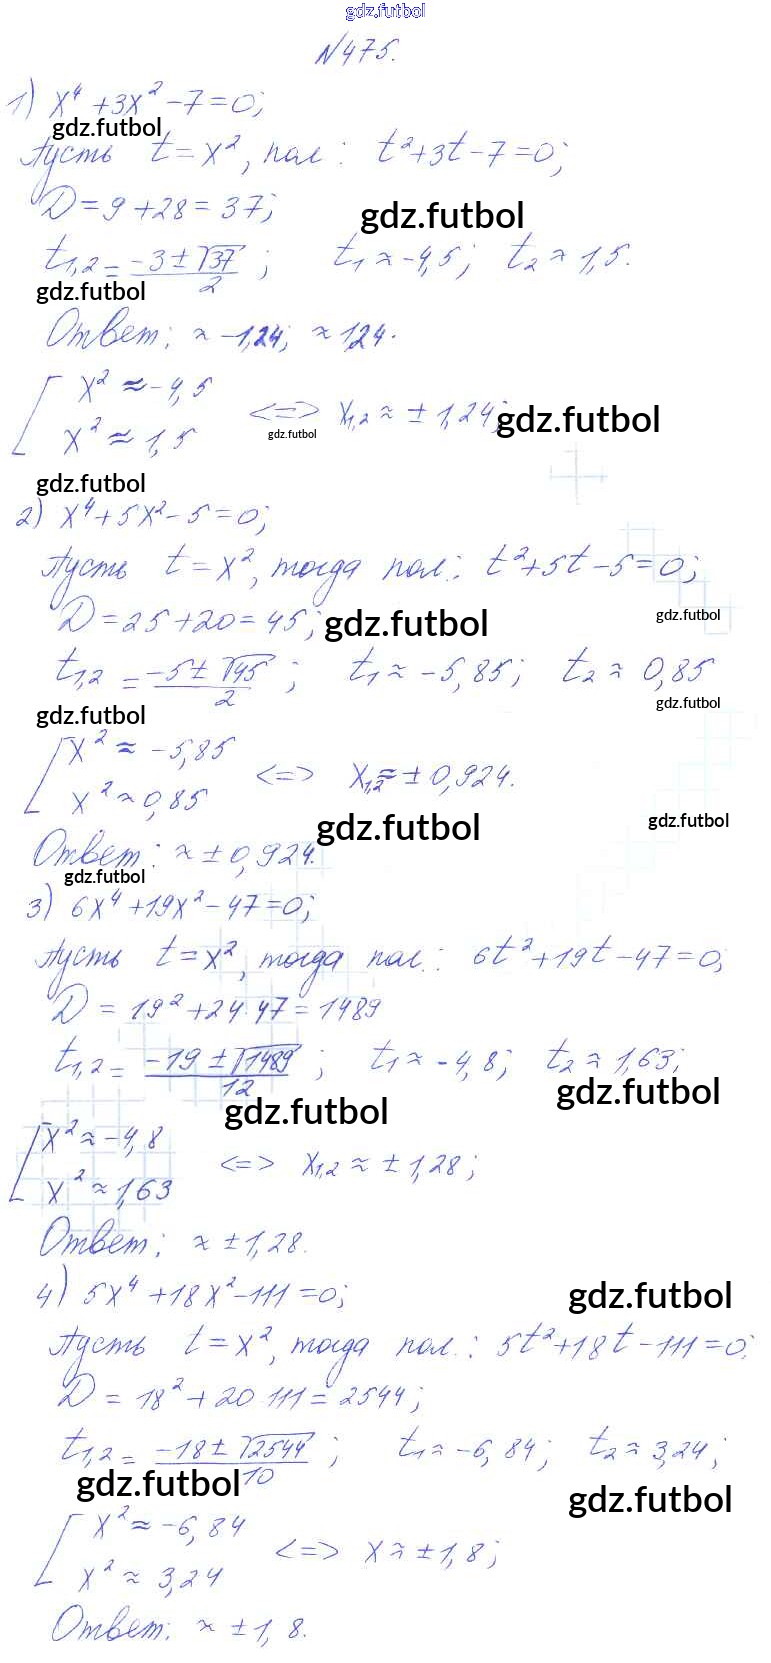 gdz.futbol
№475.
1) x⁴ + 3x² - 7 = 0;
gdz.futbol
Пусть t = x², пол: t² + 3t - 7 = 0;
D = 9 + 28 = 37;
gdz.futbol
t₁,₂ = (-3 ± √37)/2; t₁ ≈ -4,5; t₂ ≈ 1,5.
gdz.futbol
Ответ: ≈ -1,24; ≈ 1,24.
[ x² ≈ -4,5
x² ≈ 1,5 <=> x₁,₂ ≈ ± 1,24;
gdz.futbol
gdz.futbol
gdz.futbol
2) x⁴ + 5x² - 5 = 0;
Пусть t = x², тогда пол.: t² + 5t - 5 = 0;
D = 25 + 20 = 45;
gdz.futbol
gdz.futbol
t₁,₂ = (-5 ± √45)/2; t₁ ≈ -5,85; t₂ ≈ 0,85
gdz.futbol
gdz.futbol
[ x² ≈ -5,85
x² ≈ 0,85 <=> x₁,₂ ≈ ± 0,924.
gdz.futbol
gdz.futbol
Ответ: ≈ ± 0,924.
gdz.futbol
3) 6x⁴ + 19x² - 47 = 0;
Пусть t = x², тогда пол.: 6t² + 19t - 47 = 0;
D = 19² + 24·47 = 1489
t₁,₂ = (-19 ± √1489)/12; t₁ ≈ -4,8; t₂ ≈ 1,63;
gdz.futbol
gdz.futbol
[ x² ≈ -4,8
x² ≈ 1,63 <=> x₁,₂ ≈ ± 1,28;
Ответ: ≈ ± 1,28.
4) 5x⁴ + 18x² - 111 = 0;
gdz.futbol
Пусть t = x², тогда пол.: 5t² + 18t - 111 = 0;
D = 18² + 20·111 = 2544;
t₁,₂ = (-18 ± √2544)/10; t₁ ≈ -6,84; t₂ ≈ 3,24;
gdz.futbol
gdz.futbol
[ x² ≈ -6,84
x² ≈ 3,24 <=> x ≈ ± 1,8;
Ответ: ≈ ± 1,8.